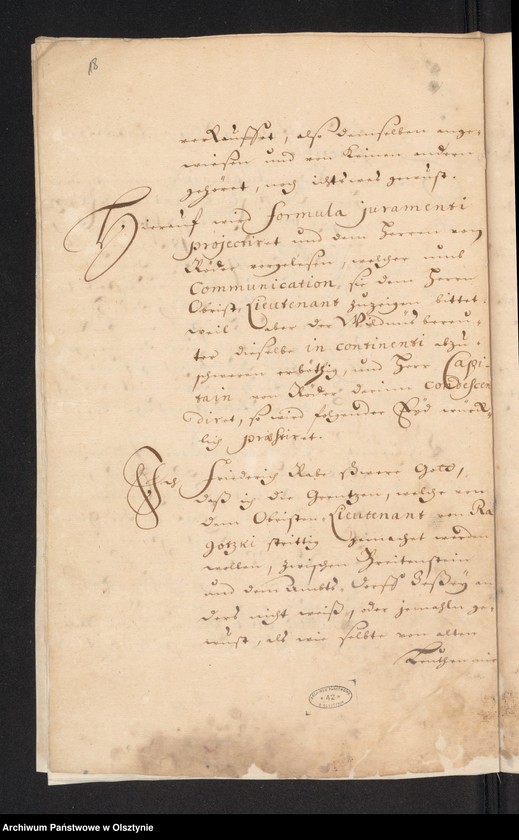 18
verkauffet, also demselben ange-
wiesen und von keinen andern
gehöret, noch ichtwas gewust.
Hierauf wird formula juramenti
projectiret und dem Herrn von
Röder vorgelesen, welcher umb
Communication, sie dem Herrn
Obrist-Lieutenant zuzeigen bittet.
weil aber der Wildnüsbereu-
ter dieselbe in continenti abzu-
schweren erböthig, und Herr Capi-
tain von Röder darinn condescen
diret, so wird folgender Eyd würk-
lich præstiret.
Ich Friederich Rabe schwere Gott,
daß ich die Grentzen, welche von
dem Obristen-Lieutenant von Ra
gotzki strittig gemachet werden
wollen, zwischen Breitenstein
und dem Ambts-Dorff an
ders nicht weiß, oder jemahln ge-
wust, als wie selbte von alten
Leuthen mir
Archiwum Państwowe w Olsztynie